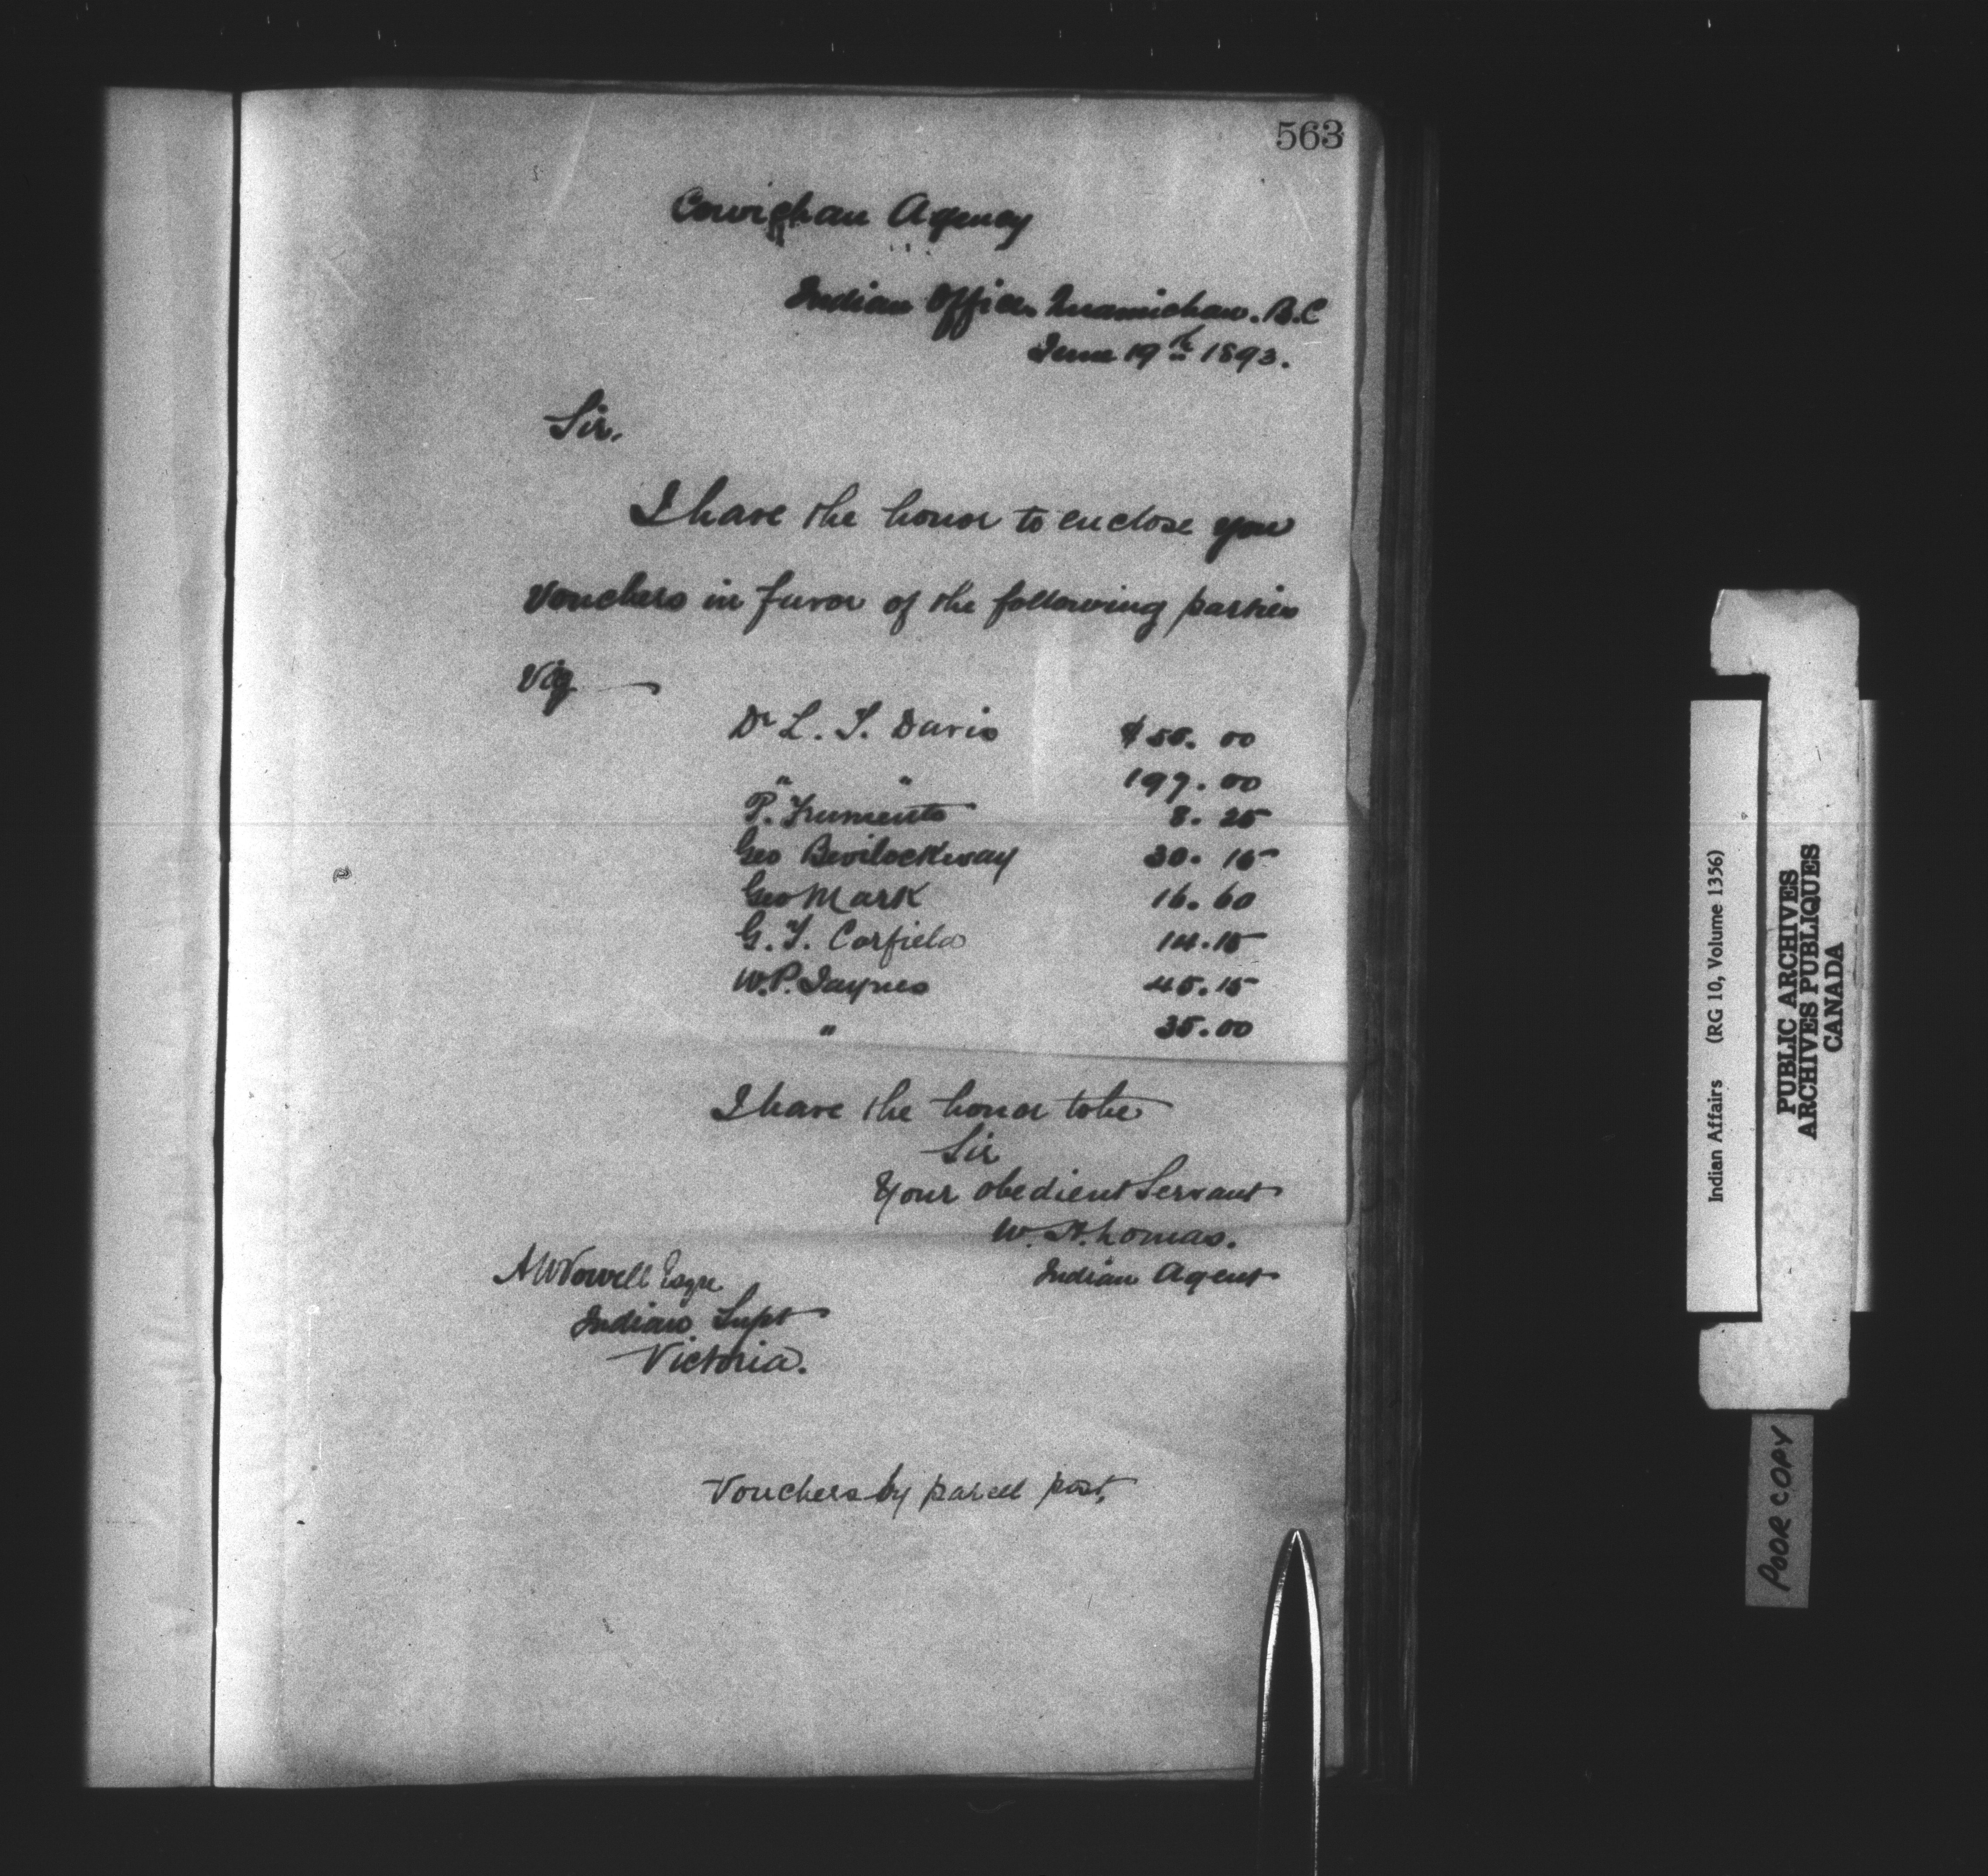 563
Cowichan Agency
Indian Office Quamichan. B.C
June 19th 1893.
Sir,
I have the honor to enclose you
Vouchers in favor of the following parties
Viz
Dr L. T. Davis $50. 00
" " 197. 00
P. Frumento 8. 25
Geo Bevilockway 30. 15
Geo Mark 16. 60
G. T. Corfield 14. 15
W. P. Jaynes 45. 15
" 35. 00
I have the honor to be
Sir
Your obedient Servant
W. H. Lomas.
Indian Agent
A W Vowell Esqre
Indian Supt
Victoria.
Vouchers by parcel post.
Indian Affairs (RG 10, Volume 1356)
PUBLIC ARCHIVES
ARCHIVES PUBLIQUES
CANADA
POOR COPY